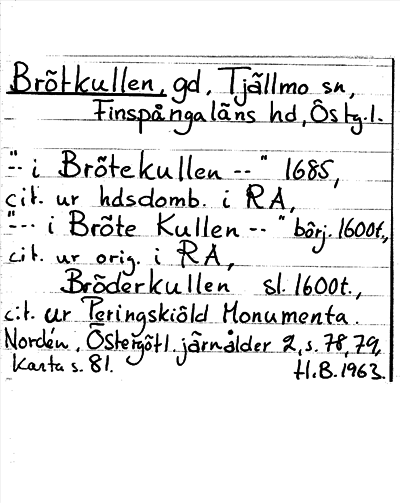 Brötkullen, gd, Tjällmo sn,
Finspångaläns hd, Östg.l.
"-- i Brötekullen --" 1685,
cit. ur hdsdomb. i RA,
"--- i Bröte Kullen --" börj. 1600t.,
cit. ur orig. i RA,
Bröderkullen sl. 1600t.,
cit. ur Peringskiöld Monumenta.
Nordén, Östergötl. järnålder 2, s. 78, 79,
Karta s. 81. H.B. 1963.